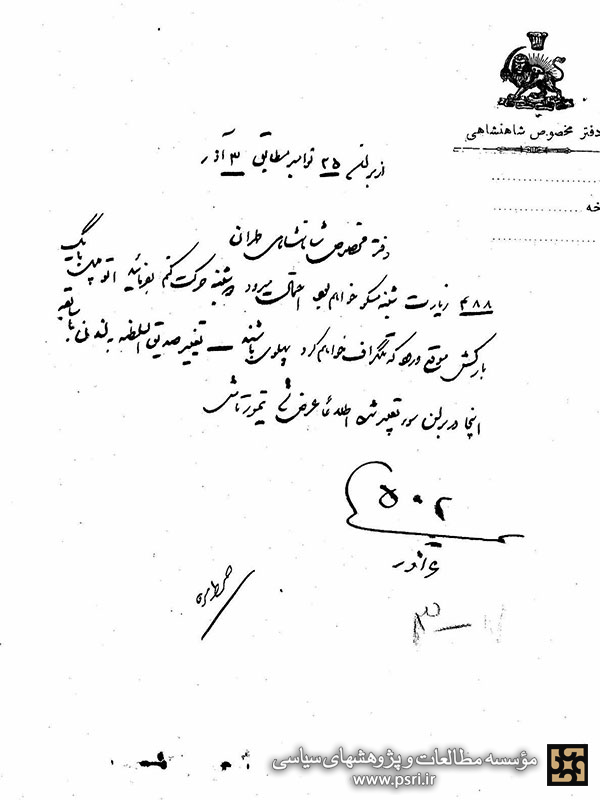 دفتر مخصوص شاهنشاهی
خه
از برلن ۲۵ نوامبر مطابق ۳ آذر
دفتر مخصوص شاهنشاهی طهران
۴۸۸ زیارت شنبه مسکو خواهم بود احتمال میرود دوشنبه حرکت کنم بفرمائید اتومبیل با یک
بارکش موقع ورود که تلگراف خواهم کرد پهلوی باشند _ تغییر صدیق السلطنه به لندن با سابقه
اینجا در برلن سوء تعبیر شده اطلاعا عرض شد تیمورتاش
۵۰۲
۴ آذر
۳
مؤسسه مطالعات و پژوهشهای سیاسی
www.psri.ir